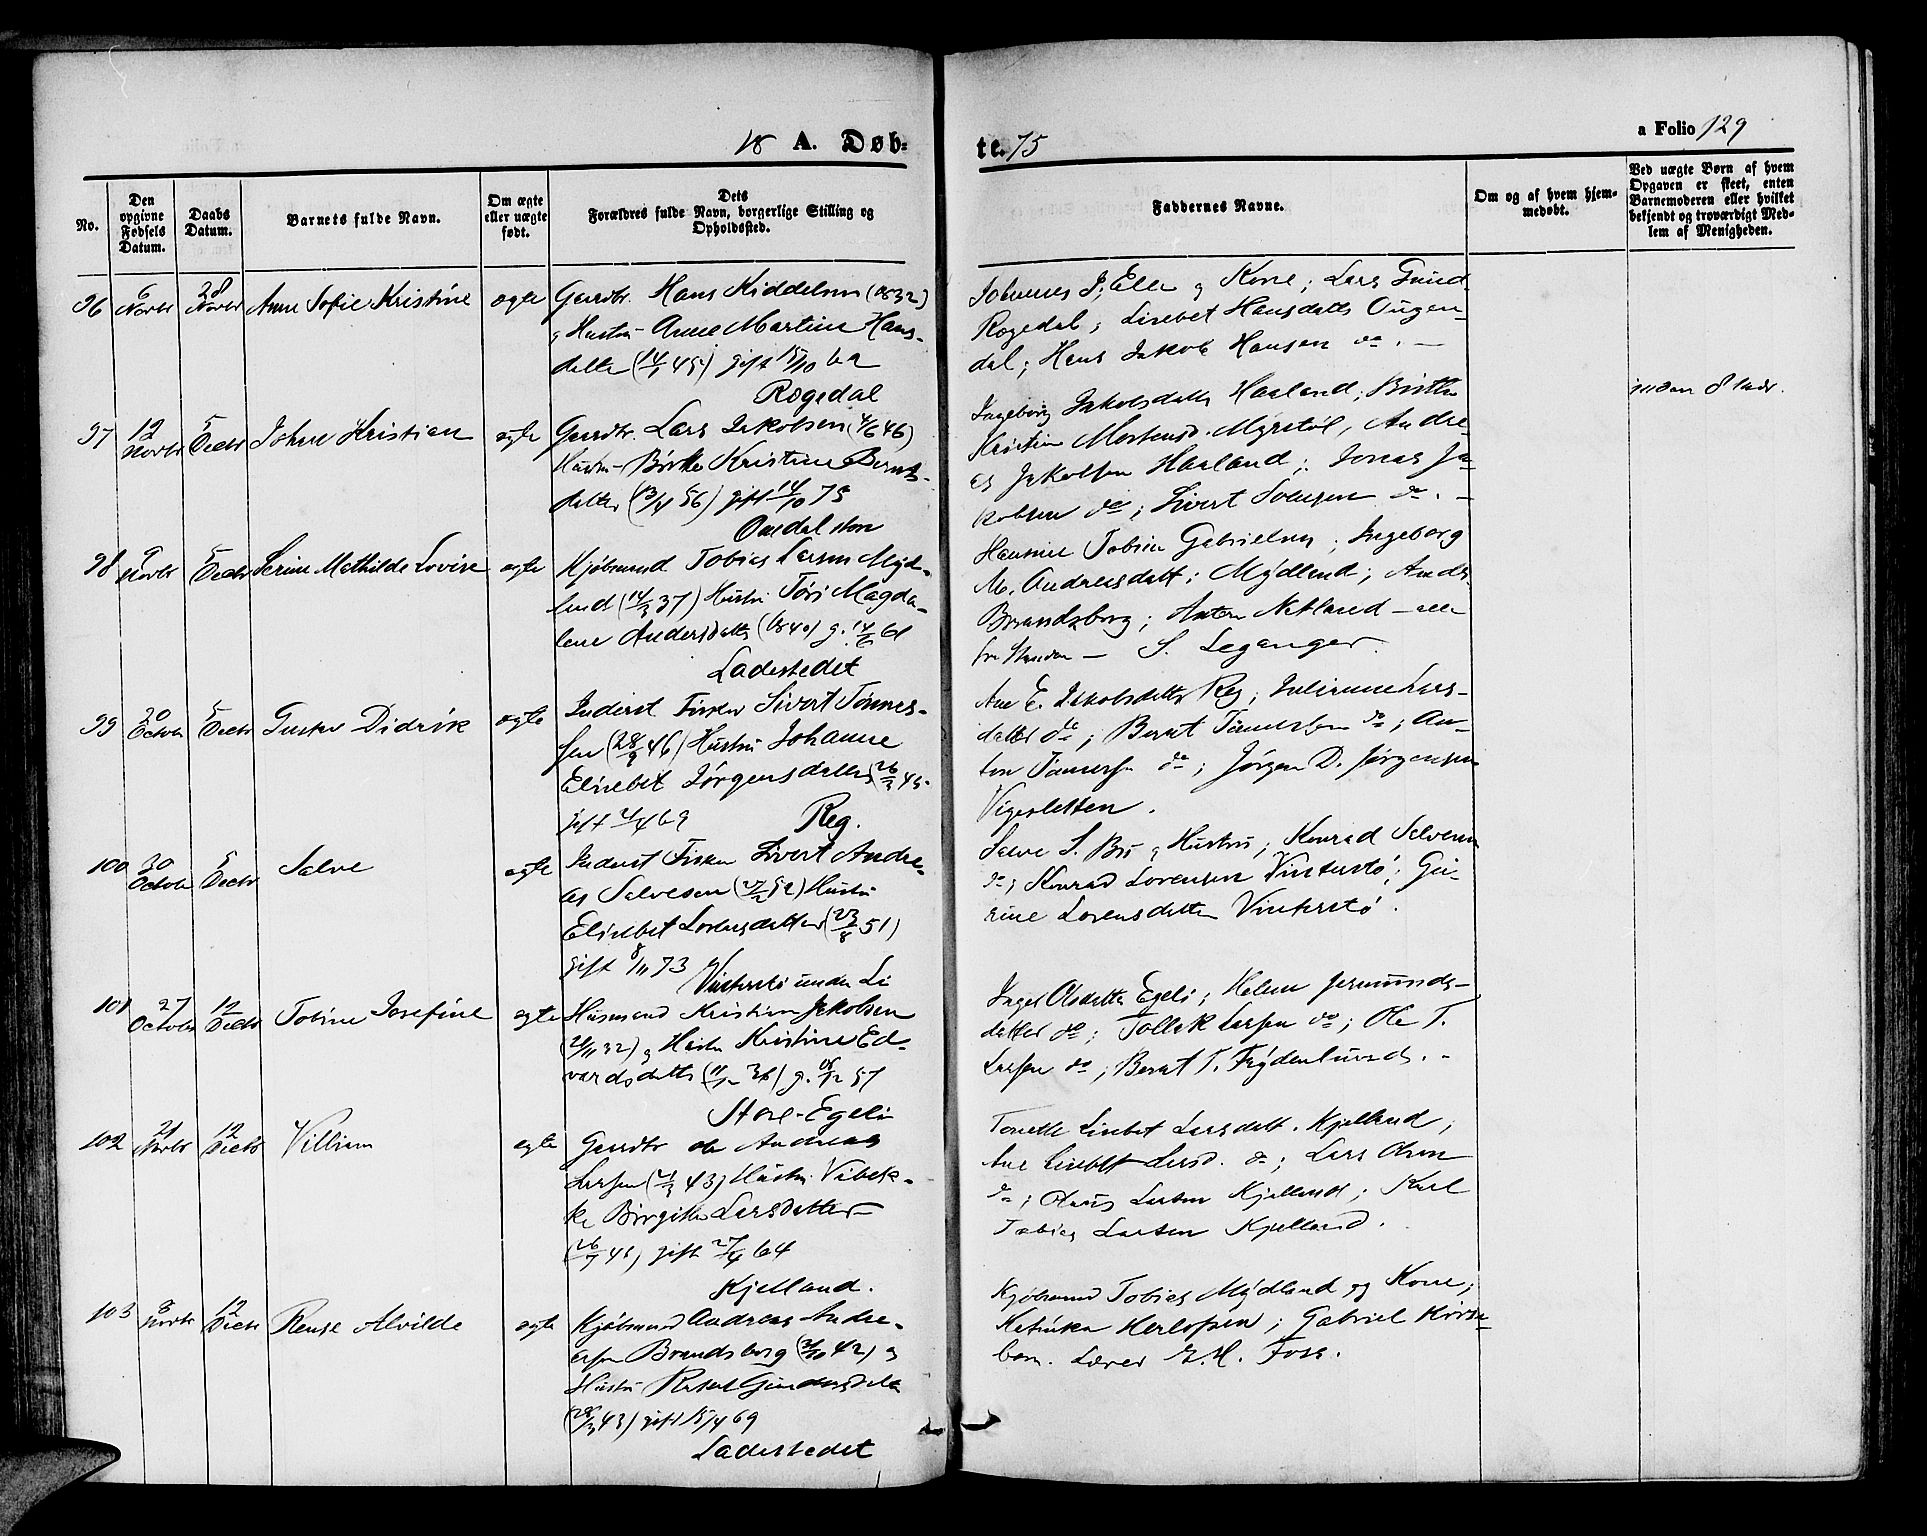 18 A. Døb-
te. 75
a Folio 129
No.
Den opgivne Fødsels Datum.
Daabs Datum.
Barnets fulde Navn.
Om ægte eller uægte født.
Dets Forældres fulde Navn, borgerlige Stilling og Opholdssted.
Faddernes Navne.
Om og af hvem hjemmedøbt.
Ved uægte Børn af hvem Opgaven er skeet, enten Barnemoderen eller hvilket bekjendt og troværdigt Medlem af Menigheden.
96 6 Novbr 28 Novbr Anne Sofie Kristine ægte Gaardbr. Hans Kiddelsen (1832)
g Hustru Anne Martine Hans-
datter (14/1 45) gift 15/10 62
Rogedal
Johannes Ellen g Kone; Lars
Rogedal; Lisebet Hansdatter
dal; Hans Jakob Hansen do. —
97 12 Novbr 5 Decbr Johan Kristian ægte Gaardbr. Lars Jakobsen (4/6 46)
Hustru Birthe Kristine Bernts-
datter (13/4 56) gift 14/10 75
Ingeborg Jakobsdatter Haaland; Birthe
Kristine Mortensd. Myrstøl, Andre-
as Jakobsen Haaland; Jonas Ja-
kobsen do; Sivert Svensen do. -
98 9 Novbr 5 Decbr Serine Mathilde Lovise ægte Kjøbmand Tobias Larsen Myd-
land (14/3 37) Hustru Tøri Magda-
lene Andersdatter (1840) g. 14/6 61
Ladestedet
Tobias Gabrielsen; Ingeborg
M. Andreasdatt; Mydland; Andr.
Brandsborg; Anton Netland — alle
fra Stranden — S. Leganger.
99 20 Octobr 5 Decbr Gustav Didrik ægte Inderst Fisker Sivert Tønnes-
sen (28/9 46) Hustru Johanne
Elisebet Jørgensdatter (26/3 45.
gift 2/4 69 Reg.
Ane E. Jakobsdatter Reg; Juliane Lars-
datter do; Bernt Tønnessen do; An-
ton Tønnessen do; Jørgen D. Jørgensen
Vigesletten.
100 30 Octobr 5 Decbr Salve ægte Inderst Fisker Sivert Andre-
as Salvesen (27/2 52) Hustru
Elisebet Lorensdatter (23/8 51)
gift 8/11 73 Vinterstø under Li
Salve S. Bø g Hustru; Konrad Salvesen
do; Konrad Lorensen Vinterstø;
Lorensdatter Vinterstø.
101 27 Octobr 12 Decbr Tobine Josefine ægte Husmand Kristian Jakobsen
(24/11 32) g Hustru Kristine Ed-
vardsdatter g. 18/12 57
Store-Egeli
Inger Olsdatter Egeli; Helene Gjermunds-
datter do; Tollak Larsen do; Ole T.
Larsen do; Bernt T. Frydenlund. -
102 21 Novbr 12 Decbr Villiam ægte Gaardbr Ole Andreas
Larsen (2/3 43) Hustru Vibek-
ke Birgitte Larsdatter
(26/7 45) gift 27/4 64
Kjelland.
Tonette Lisebet Larsdatt. Kjelland;
Ane Lisebet Larsd. do; Lars Olsen
do; Olaus Larsen Kjelland; Karl
Tobias Larsen Kjelland.
103 8 Novbr 12 Decbr Rense Alvilde ægte Kjøbmand Andreas Andre-
assen Brandsborg (2/10 42) g
Hustru
(28/3 43) gift 15/4 69
Ladestedet
Kjøbmand Tobias Mydland og Kone;
Katinka Gabriel
Lærer Foss.